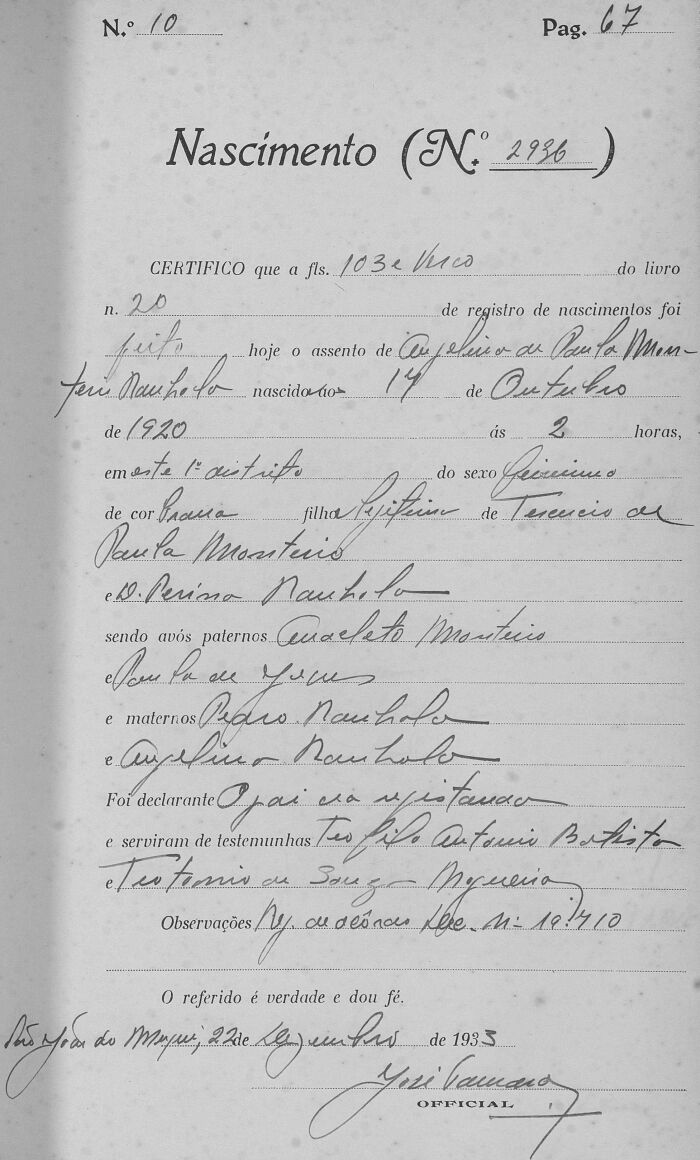 N.º 10 Pag. 67
Nascimento (N.º 2936)
CERTIFICO que a fls. 103 e verso do livro
n. 20 de registro de nascimentos foi
feito hoje o assento de Angelina de Paula Mon-
teiro Ranhola nascida ao 17 de Outubro
de 1920 ás 2 horas,
em este 1º distrito do sexo feminino
de cor branca filha legitima de Terencio de
Paula Monteiro
e D. Perina Ranhola
sendo avós paternos Anacleto Monteiro
e Paula de Jesus
e maternos Pedro Ranhola
e Angelina Ranhola
Foi declarante O pai da registanda
e serviram de testemunhas Teofilo Antonio Batista
e Teotonio de Souza Nogueira
Observações Reg. de acôrdo Dec. N- 19.710
O referido é verdade e dou fé.
São João do Mequi, 22 de Dezembro de 1933
José
OFFICIAL